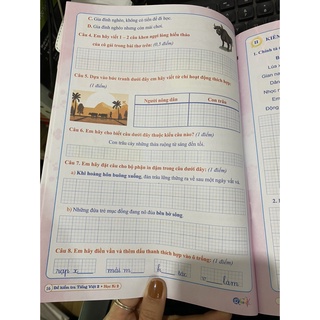 C. Gia đình nghèo, không có tiền để đi học.
D. Gia đình nghèo nhưng
Câu 4. Em hãy viết 1 - 2 câu khen ngợi
của cô gái trong bài thơ trên: (0,5 điểm)
Câu 5. Dựa vào bức tranh dưới đây em hãy viết từ chỉ hoạt động thích hợp:
(1 điểm)
Người nông dân
Con trâu
Câu 6. Em hãy cho biết câu dưới đây thuộc kiểu câu nào? (1 điểm)
Con trâu cày những thửa ruộng từ sáng đến tối.
Câu 7. Em hãy đặt câu cho bộ phận in đậm trong câu dưới đây: (1 điểm)
a) Khi hoàng hôn buông xuống, đàn trâu lững thững ra về sau một ngày vất vả.
b) Những đứa trẻ mục đồng đang nô đùa bên bờ sông.
Câu 8. Em hãy điền vần và thêm dấu thanh thích hợp vào ô trống: (1 điểm)
rạp x
mái m
làm
28
Đề kiểm tra Tiếng Việt 2 - Học kì 2
KIỂ
1. Chính tả
Lúa
Gian na
Dân
Nhọc n
Em
Động
2.